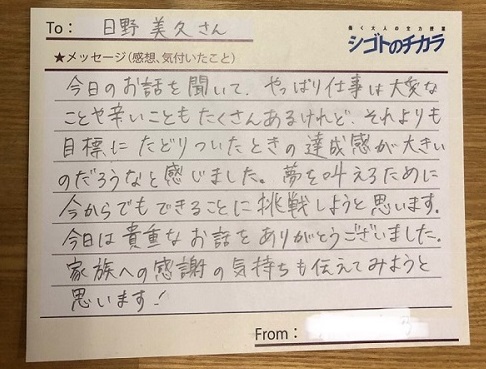 To: 日野 美久さん
働く大人の生力授業
シゴトのチカラ
★メッセージ(感想、気付いたこと)
今日のお話を聞いて、やっぱり仕事は大変な
ことや辛いこともたくさんあるけれど、それよりも
目標にたどりついたときの達成感が大きい
のだろうなと感じました。夢を叶えるために
今からでもできることに挑戦しようと思います。
今日は貴重なお話をありがとうございました。
家族への感謝の気持ちも伝えてみようと
思います!
From: